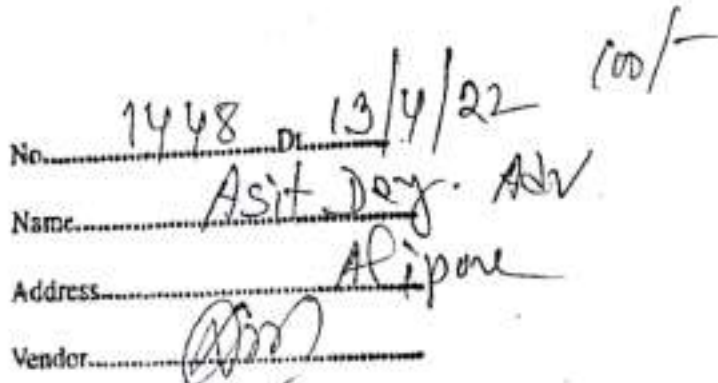 100/-
No. 1448 Dt. 13/4/22
Name Asit Dey. Adv
Address Alipore
Vendor